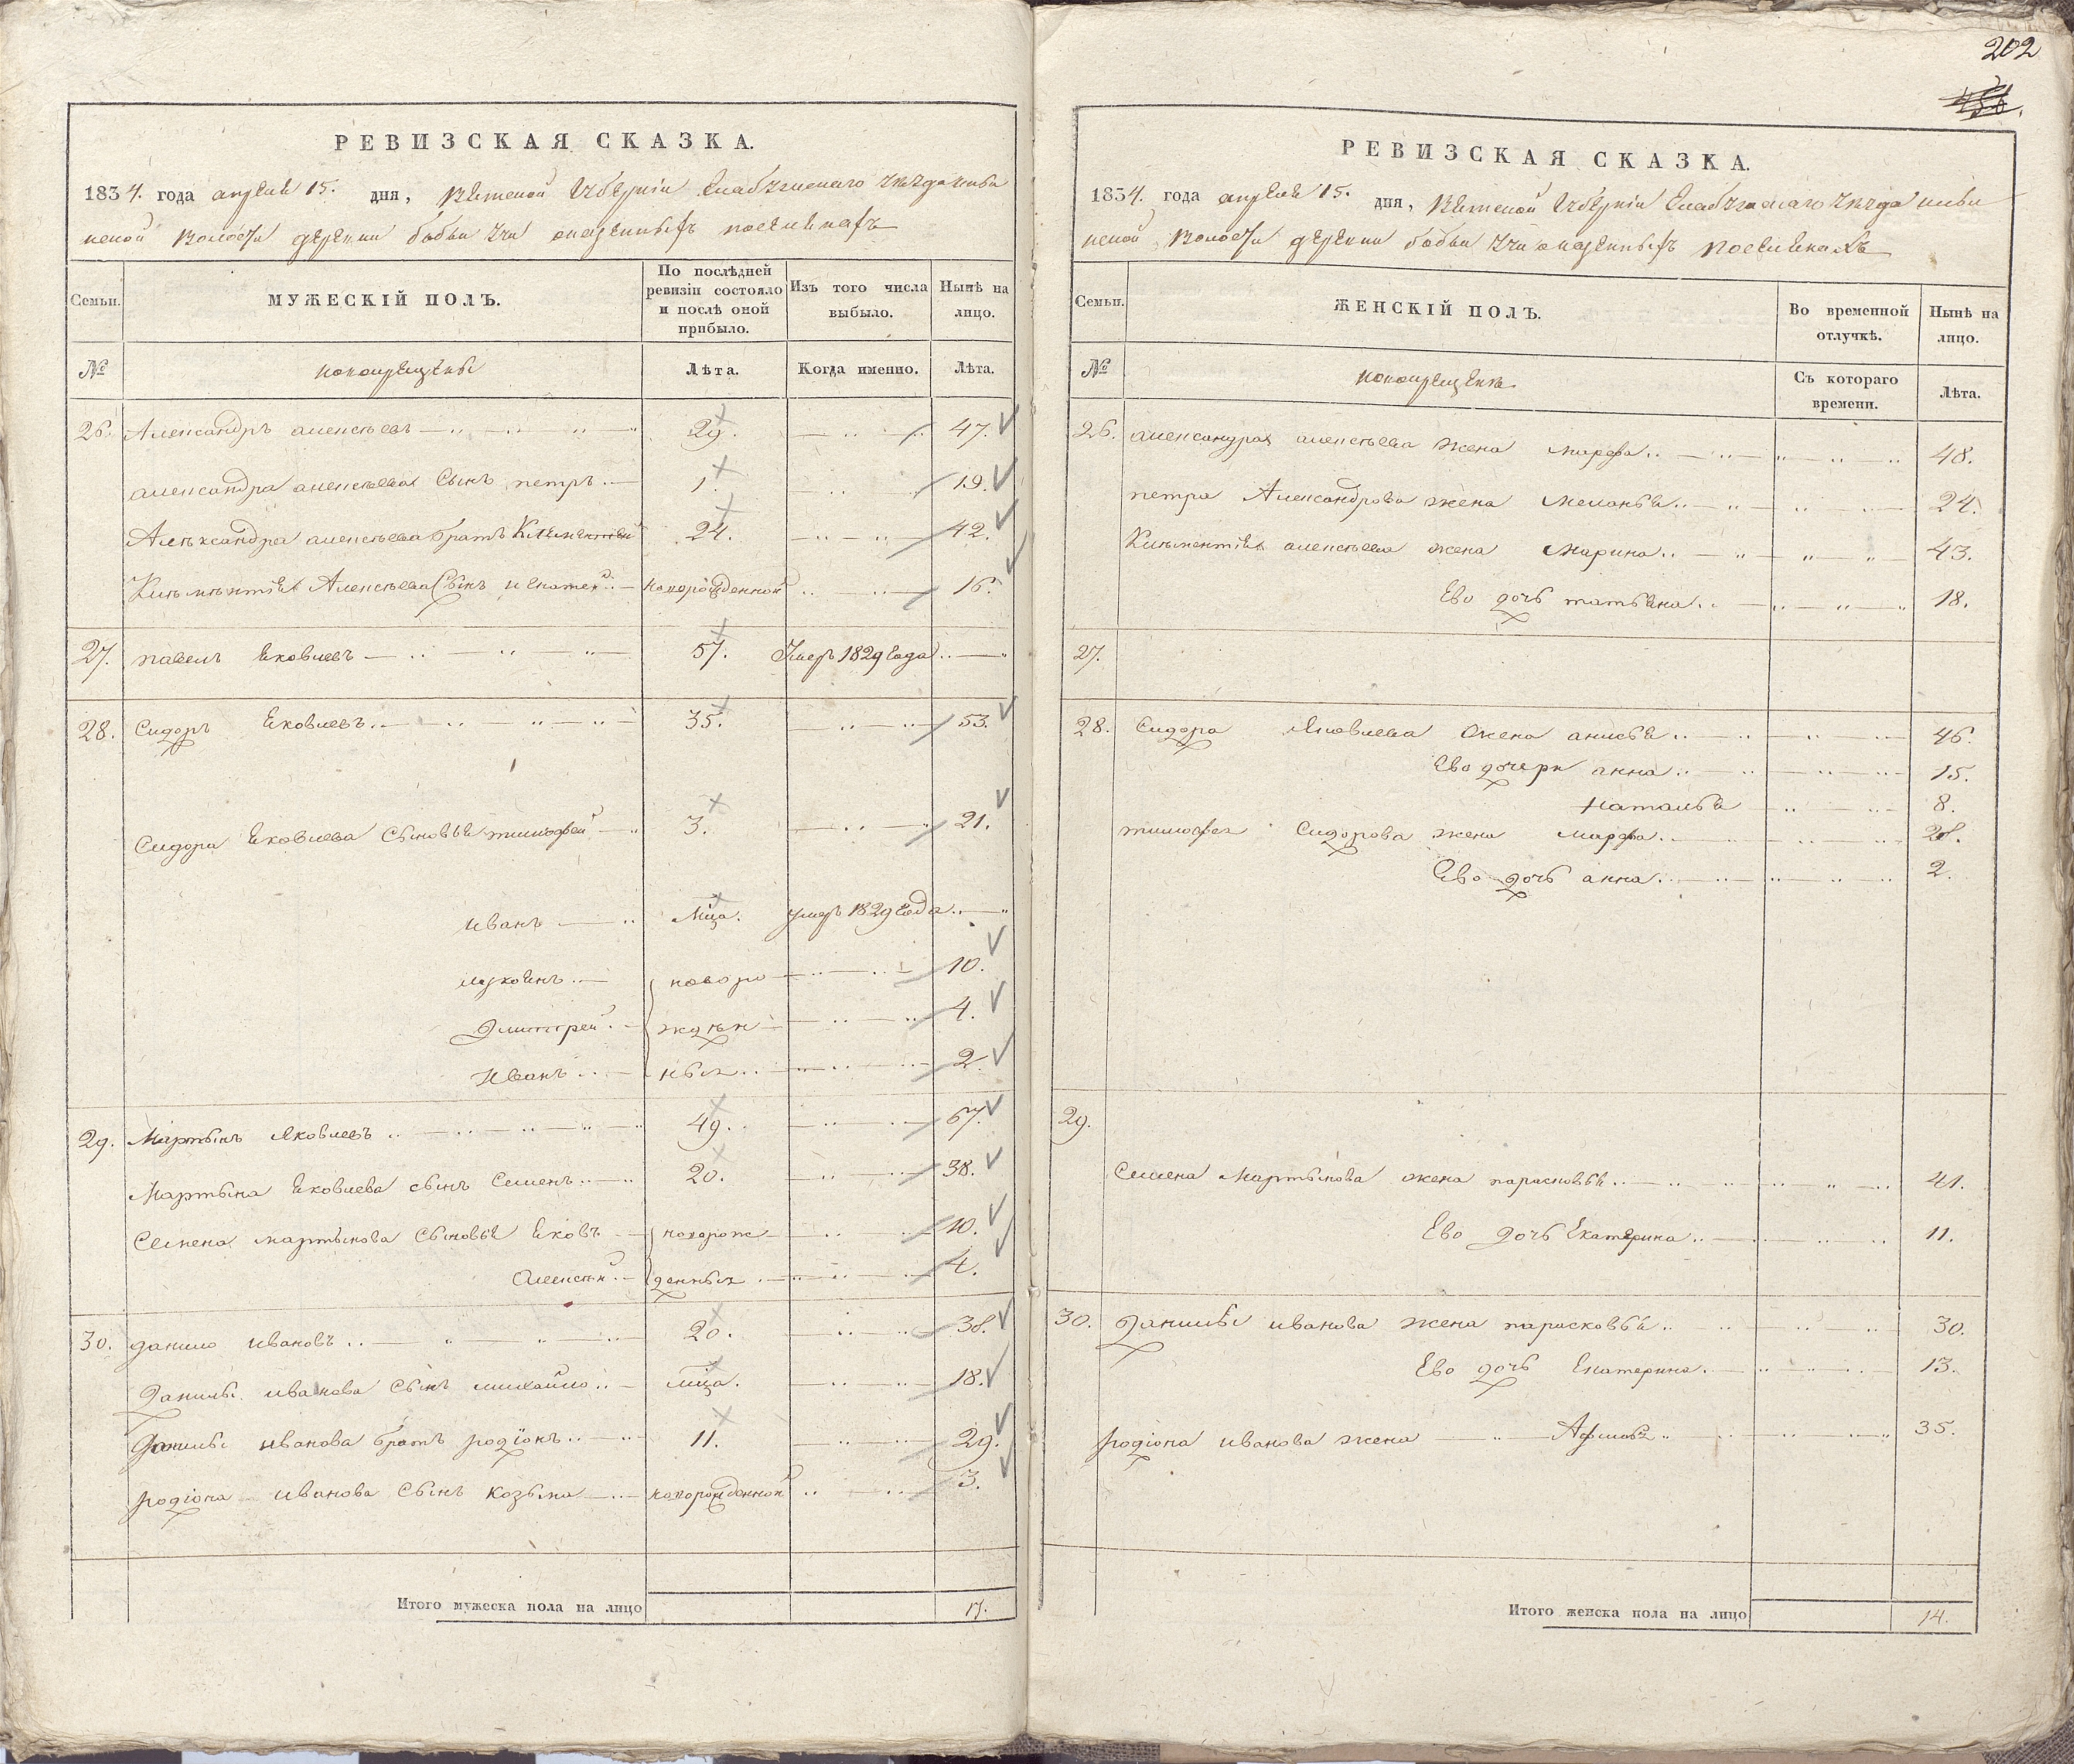 202
РЕВИЗСКАЯ СКАЗКА.
1834. года апреля 15. дня, Вятской Губерніи Елабужскаго уезда
ской Волости деревни бобьи учи
Семьи.
МУЖЕСКІЙ ПОЛЪ.
По послѣдней ревизіи состояло и послѣ оной прибыло.
Изъ того числа выбыло.
Нынѣ на лицо.
№
новокрещены
Лѣта.
Когда именно.
Лѣта.
26. Александръ алексѣевъ 29. 47.
александра алексѣева Сынъ петръ 1. 19.
Александра алексѣева братъ 24. 42.
Алексѣева Сынъ новорожденной 16.
27. павелъ Яковлевъ 57. Умеръ 1829 Года
28. Сидоръ Яковлевъ 35. 53.
Сидора Яковлева Сыновья тимофей 3. 21.
иванъ мца. умеръ 1829 Года
новоро 10.
Дмитрей жден 4.
Иванъ ныя 2.
29. Мартынъ Яковлевъ 49. 67.
Мартына Яковлева сынъ Семенъ 20. 38.
Семена мартынова Сыновья Яковъ новорож 10.
Алексей денныя 4.
30. данило ивановъ 20. 38.
Данилы иванова Сынъ михайло мца. 18.
Данилы иванова братъ родіонъ 11. 29.
родіона иванова Сынъ козьма новорожденной 3.
Итого мужеска пола на лицо 17.
РЕВИЗСКАЯ СКАЗКА.
1834. года апреля 15. дня, Вятской Губерніи Елабужскаго уезда
ской Волости деревни бобьи учи
Семьи.
ЖЕНСКІЙ ПОЛЪ.
Во временной отлучкѣ.
Нынѣ на лицо.
№
новокрещены
Съ котораго времени.
Лѣта.
26. александра алексѣева жена марфа 48.
петра Александрова жена меланья 24.
алексѣева жена Марина 43.
Ево дочь татьяна 18.
27.
28. Сидора Яковлева жена анисья 46.
Ево дочери анна 15.
Наталья 8.
тимофея Сидорова жена марфа
Ево дочь анна 2.
29.
Семена Мартынова жена парасковья 41.
Ево дочь Екатерина 11.
30. Данилы иванова жена парасковья 30.
Ево дочь Екатерина 13.
родіона иванова жена 35.
Итого женска пола на лицо 14.